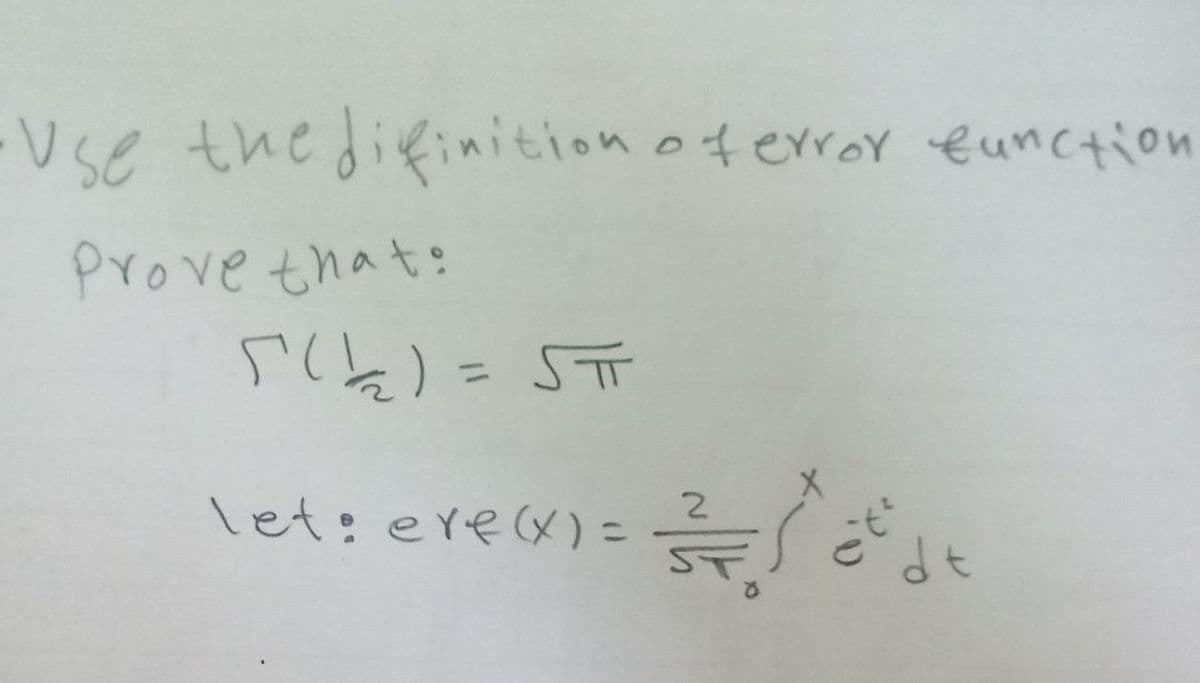 Use the difinition of error function
Prove that:
Γ(1/2) = √π
let: erf(x) = 2/√π ∫₀ˣ e^{-t²} dt